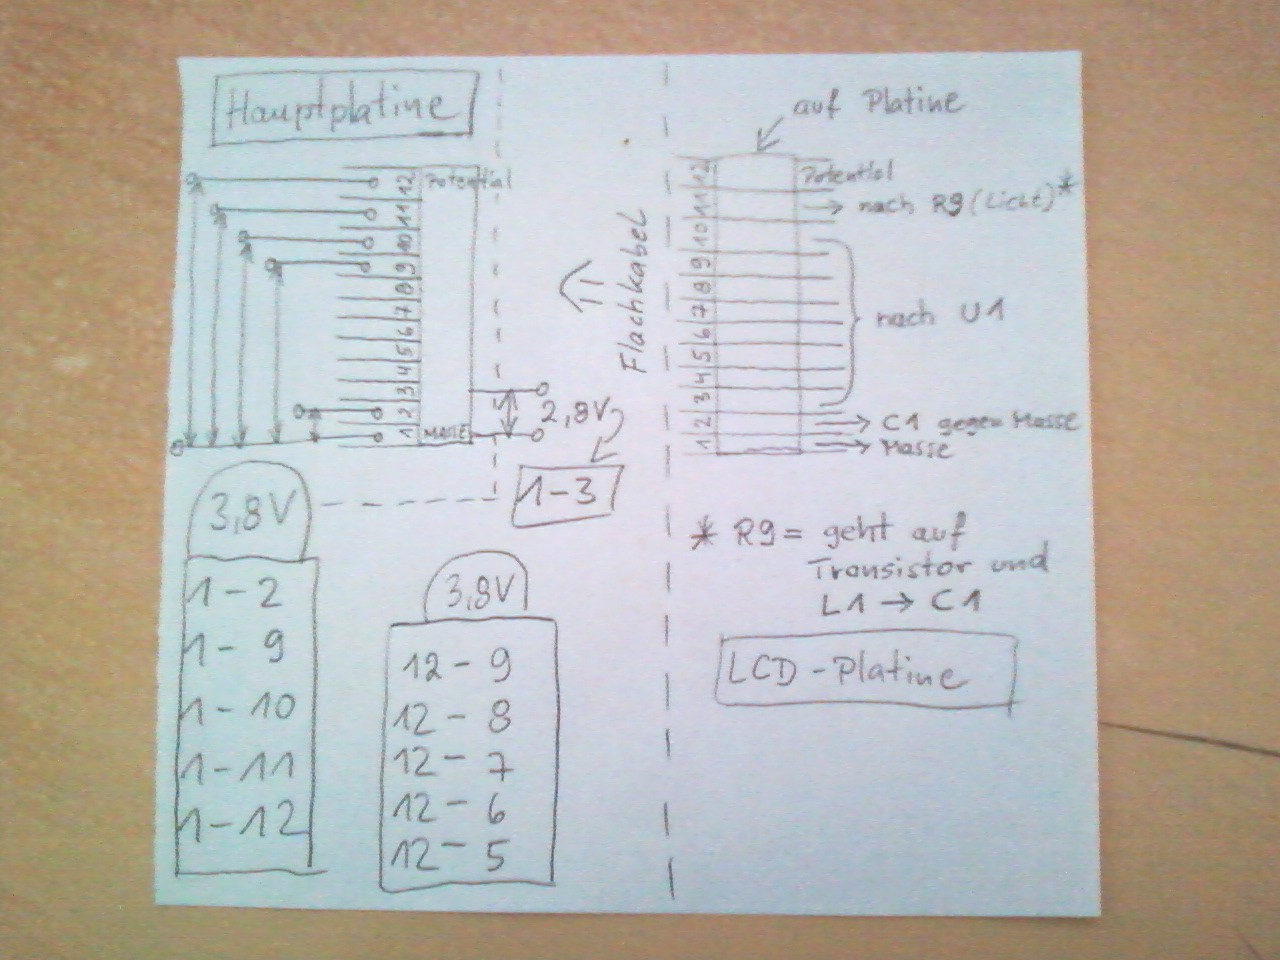 Hauptplatine
12 Potential
11
10
9
8
7
6
5
4
3
2
1 MASSE
2,8V
1-3
3,8V
1-2
1-9
1-10
1-11
1-12
3,8V
12-9
12-8
12-7
12-6
12-5
Flachkabel
auf Platine
12 Potential
11 nach R9 (Licht)*
10
9
8
7
6
5
4
3
nach U1
2 C1 gegen Masse
1 Masse
* R9 = geht auf
Transistor und
L1 → C1
LCD-Platine